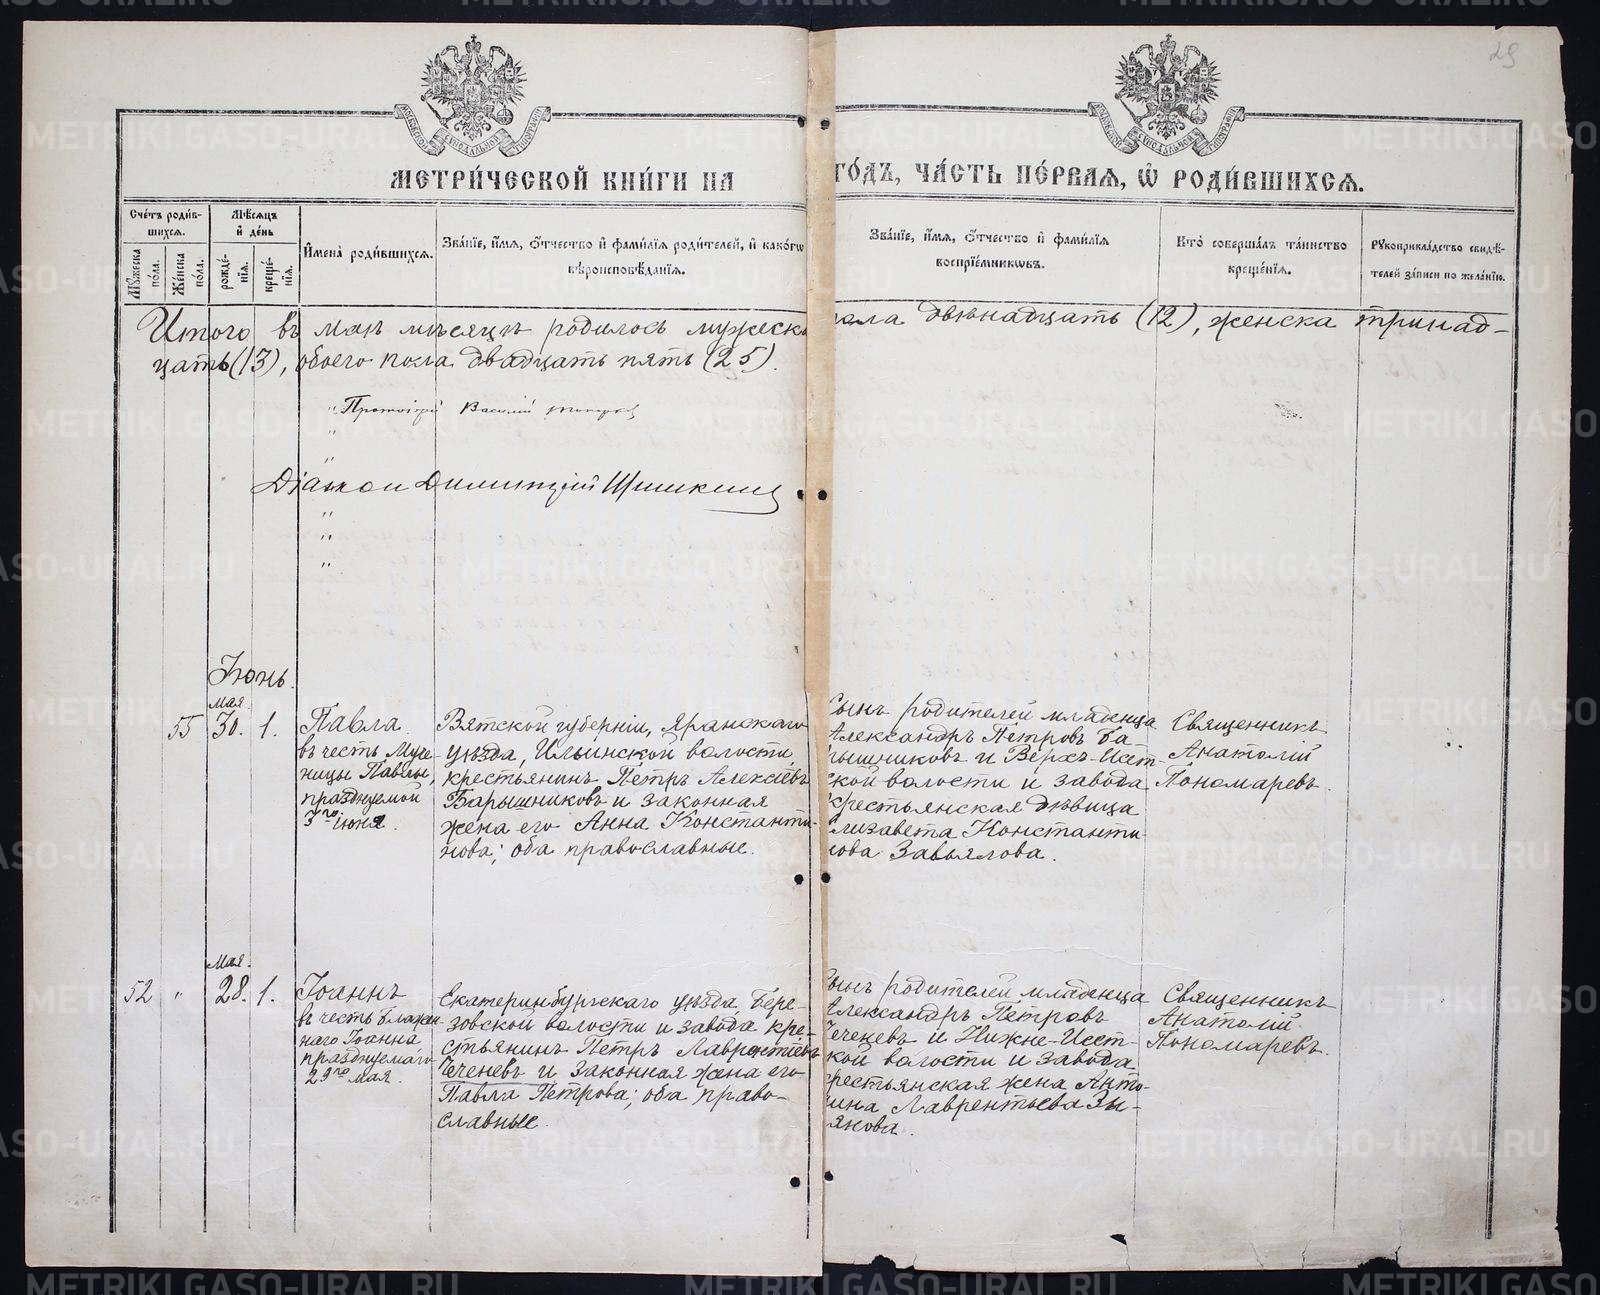 29
МЕТРИ́ЧЕСКОЙ КНИ́ГИ НА ГО́ДЪ, ЧА́СТЬ ПЕ́РВАЯ, Ѡ РОДИ́ВШИХСЯ.
Сче́тъ роди́в-
шихся.
Мѹжеска по́ла.
Же́нска по́ла.
Мѣ́сяцъ
и де́нь
рожде́-
нїя.
креще́-
нїя.
Имена̀ роди́вшихся.
Зва́нїе, и́мя, о́тчество и фами́лїя роди́телей, и како́гѡ
вѣроисповѣ́данїя.
Зва́нїе, и́мя, о́тчество и фами́лїя
воспрїе́мникѡвъ.
Кто̀ соверша́лъ та́инство
креще́нїя.
Рукоприкла́дство свидѣ́-
телей за́писи по жела́нїю.
Итого въ маѣ мѣсяцѣ родилось мужеска пола двѣнадцать (12), женска тринад-
цать (13), обоего пола двадцать пять (25).
Протоіерей Василій
Діаконъ Димитрій Шишкинъ
Іюнь.
мая
55 30. 1.
Павла
въ честь Муче-
ницы Павлы,
празднуемой
3го іюня.
Вятской губерніи, Яранскаго
уѣзда, Ильинской волости,
крестьянинъ Петръ Алексѣевъ
Барышниковъ и законная
жена его Анна Константи-
нова; оба православные.
Сынъ родителей младенца
Александръ Петровъ Ба-
рышниковъ и Верхъ-Исет-
ской волости и завода
крестьянская дѣвица
Елизавета Константи-
нова Завьялова.
Священникъ
Анатолій
Пономаревъ.
мая.
52 " 28. 1.
Іоаннъ
въ честь блажен-
наго Іоанна
празднуемаго
29го мая.
Екатеринбургскаго уѣзда, Бере-
зовской волости и завода кре-
стьянинъ Петръ Лаврентіевъ
Чеченевъ и законная жена его
Павла Петрова; оба право-
славные.
Сынъ родителей младенца
Александръ Петровъ
Чеченевъ и Нижне-Исет-
ской волости и завода
крестьянская жена Анто-
нина Лаврентьева Зы-
рянова.
Священникъ
Анатолій
Пономаревъ.
METRIKI.GASO-URAL.RU